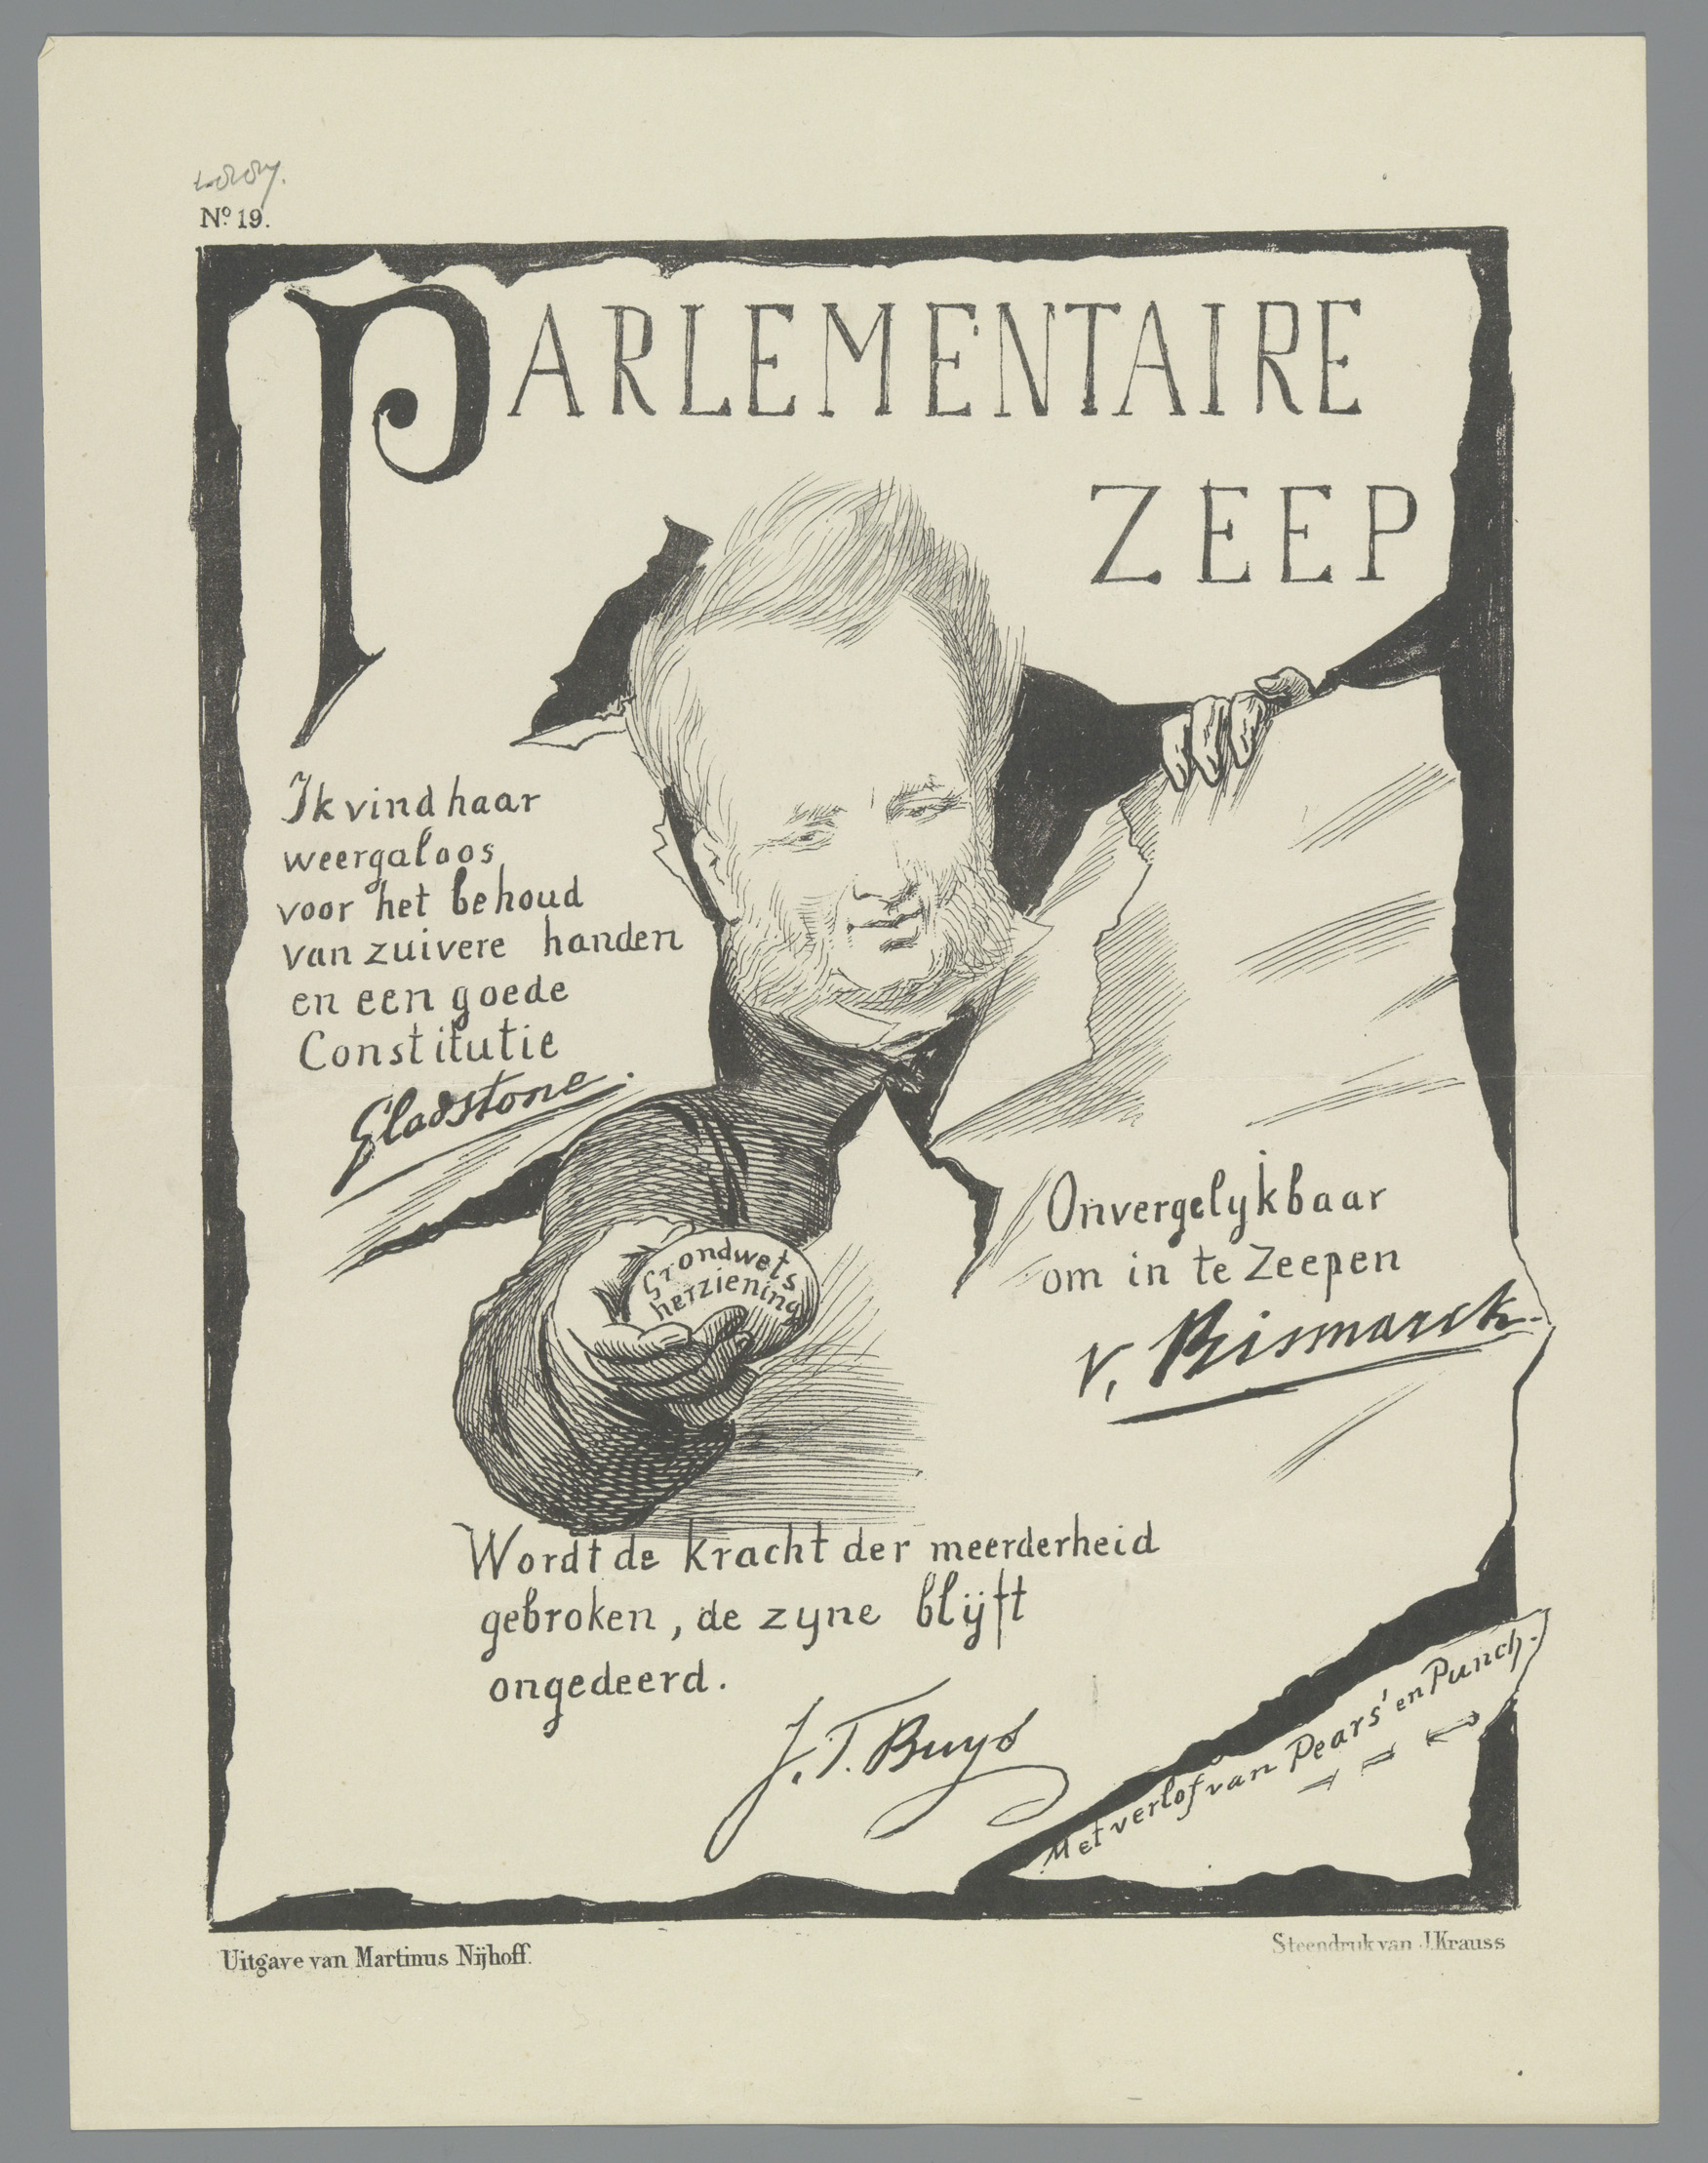 No. 19.
PARLEMENTAIRE
ZEEP
Ik vind haar
weergaloos
voor het behoud
van zuivere handen
en een goede
Constitutie
Gladstone.
Grondwets
herziening
Onvergelykbaar
om in te Zeepen
V. Bismarck.
Wordt de kracht der meerderheid
gebroken, de zyne blijft
ongedeerd.
J. T. Buys
Met verlof van Pears' en Punch.
Uitgave van Martinus Nijhoff.
Steendruk van J. Krauss